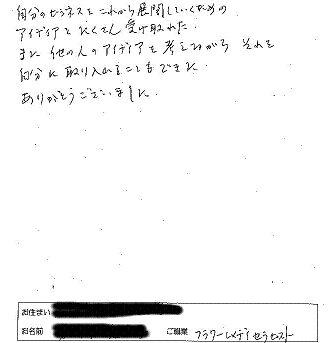 自分のビジネスをこれから展開していくための
アイディアをたくさん受け取れた.
また 他の人のアイディアを考えながら それを
自分に取り入れることもできた.
ありがとうございました.
お住まい
お名前
ご職業 フラワーレメディセラピスト